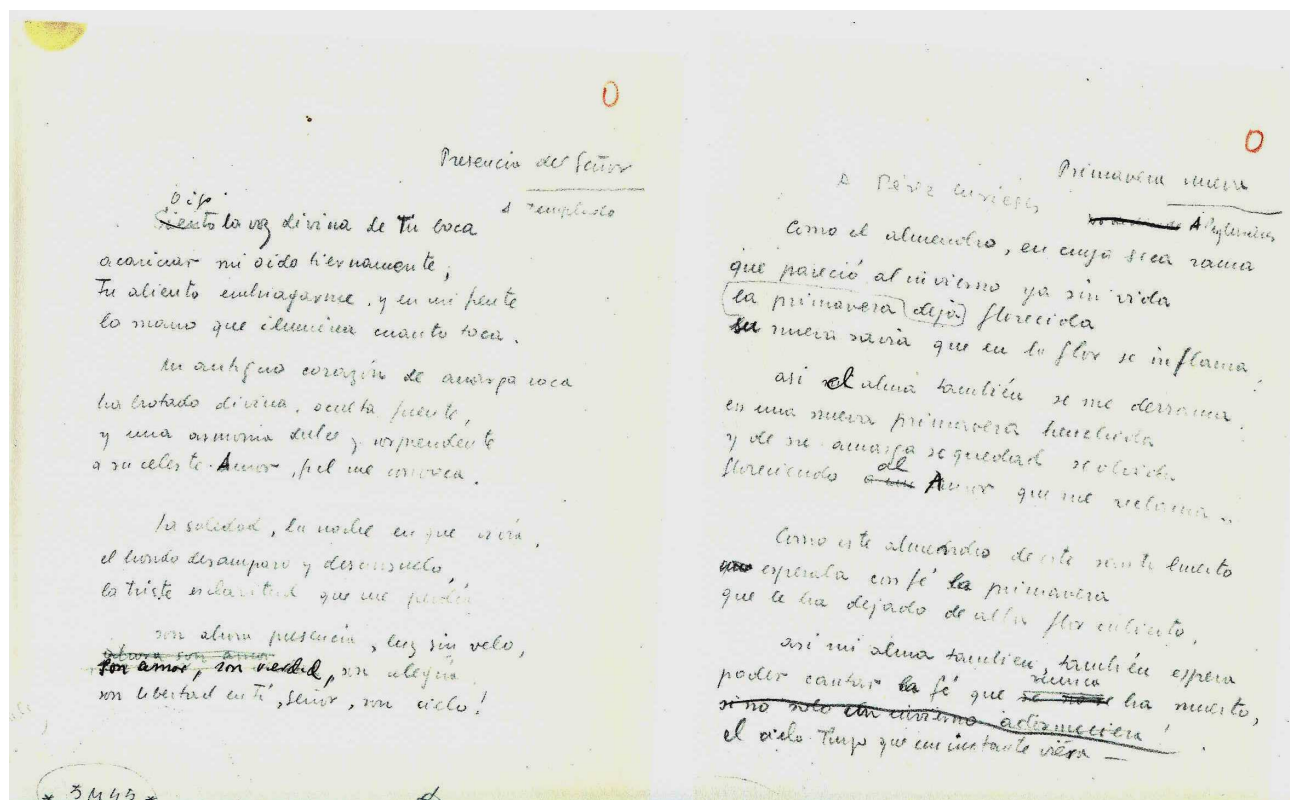 O
Presencia del Señor
A Templado
Oigo
Siento la voz divina de Tu boca
acariciar mi oido tiernamente;
Tu aliento embriagarme, y en mi frente
la mano que ilumina cuanto toca.
Mi antiguo corazón de amarga roca
ha brotado divina, oculta fuente,
y una armonia dulce y sorprendente
a su celeste Amor, fiel me convoca.
La soledad, la noche en que vivía,
el hondo desamparo y desconsuelo,
la triste esclavitud que me perdía
son ahora presencia, luz sin velo,
ahora son amor
son amor, son verdad, son alegria
son libertad en Ti, Señor, son cielo!
* 3M45 *
O
Primavera nueva
A Pérez
A
Como el almendro, en cuya seca rama
que pareció al invierno ya sin vida
la primavera deja florecida
su nueva savia que en la flor se inflama,
asi el alma también se me derrama
en una nueva primavera henchida
y de su amarga sequedad se olvida
al
floreciendo a un Amor que me reclama..
Como este almendro de este
esperaba con fé la primavera
que le ha dejado de alba flor cubierto,
asi mi alma tambien, también espera
nunca
poder cantar la fé que se no se ha muerto,
si no solo un invierno adormeciera!
el cielo Tuyo que un instante viera —